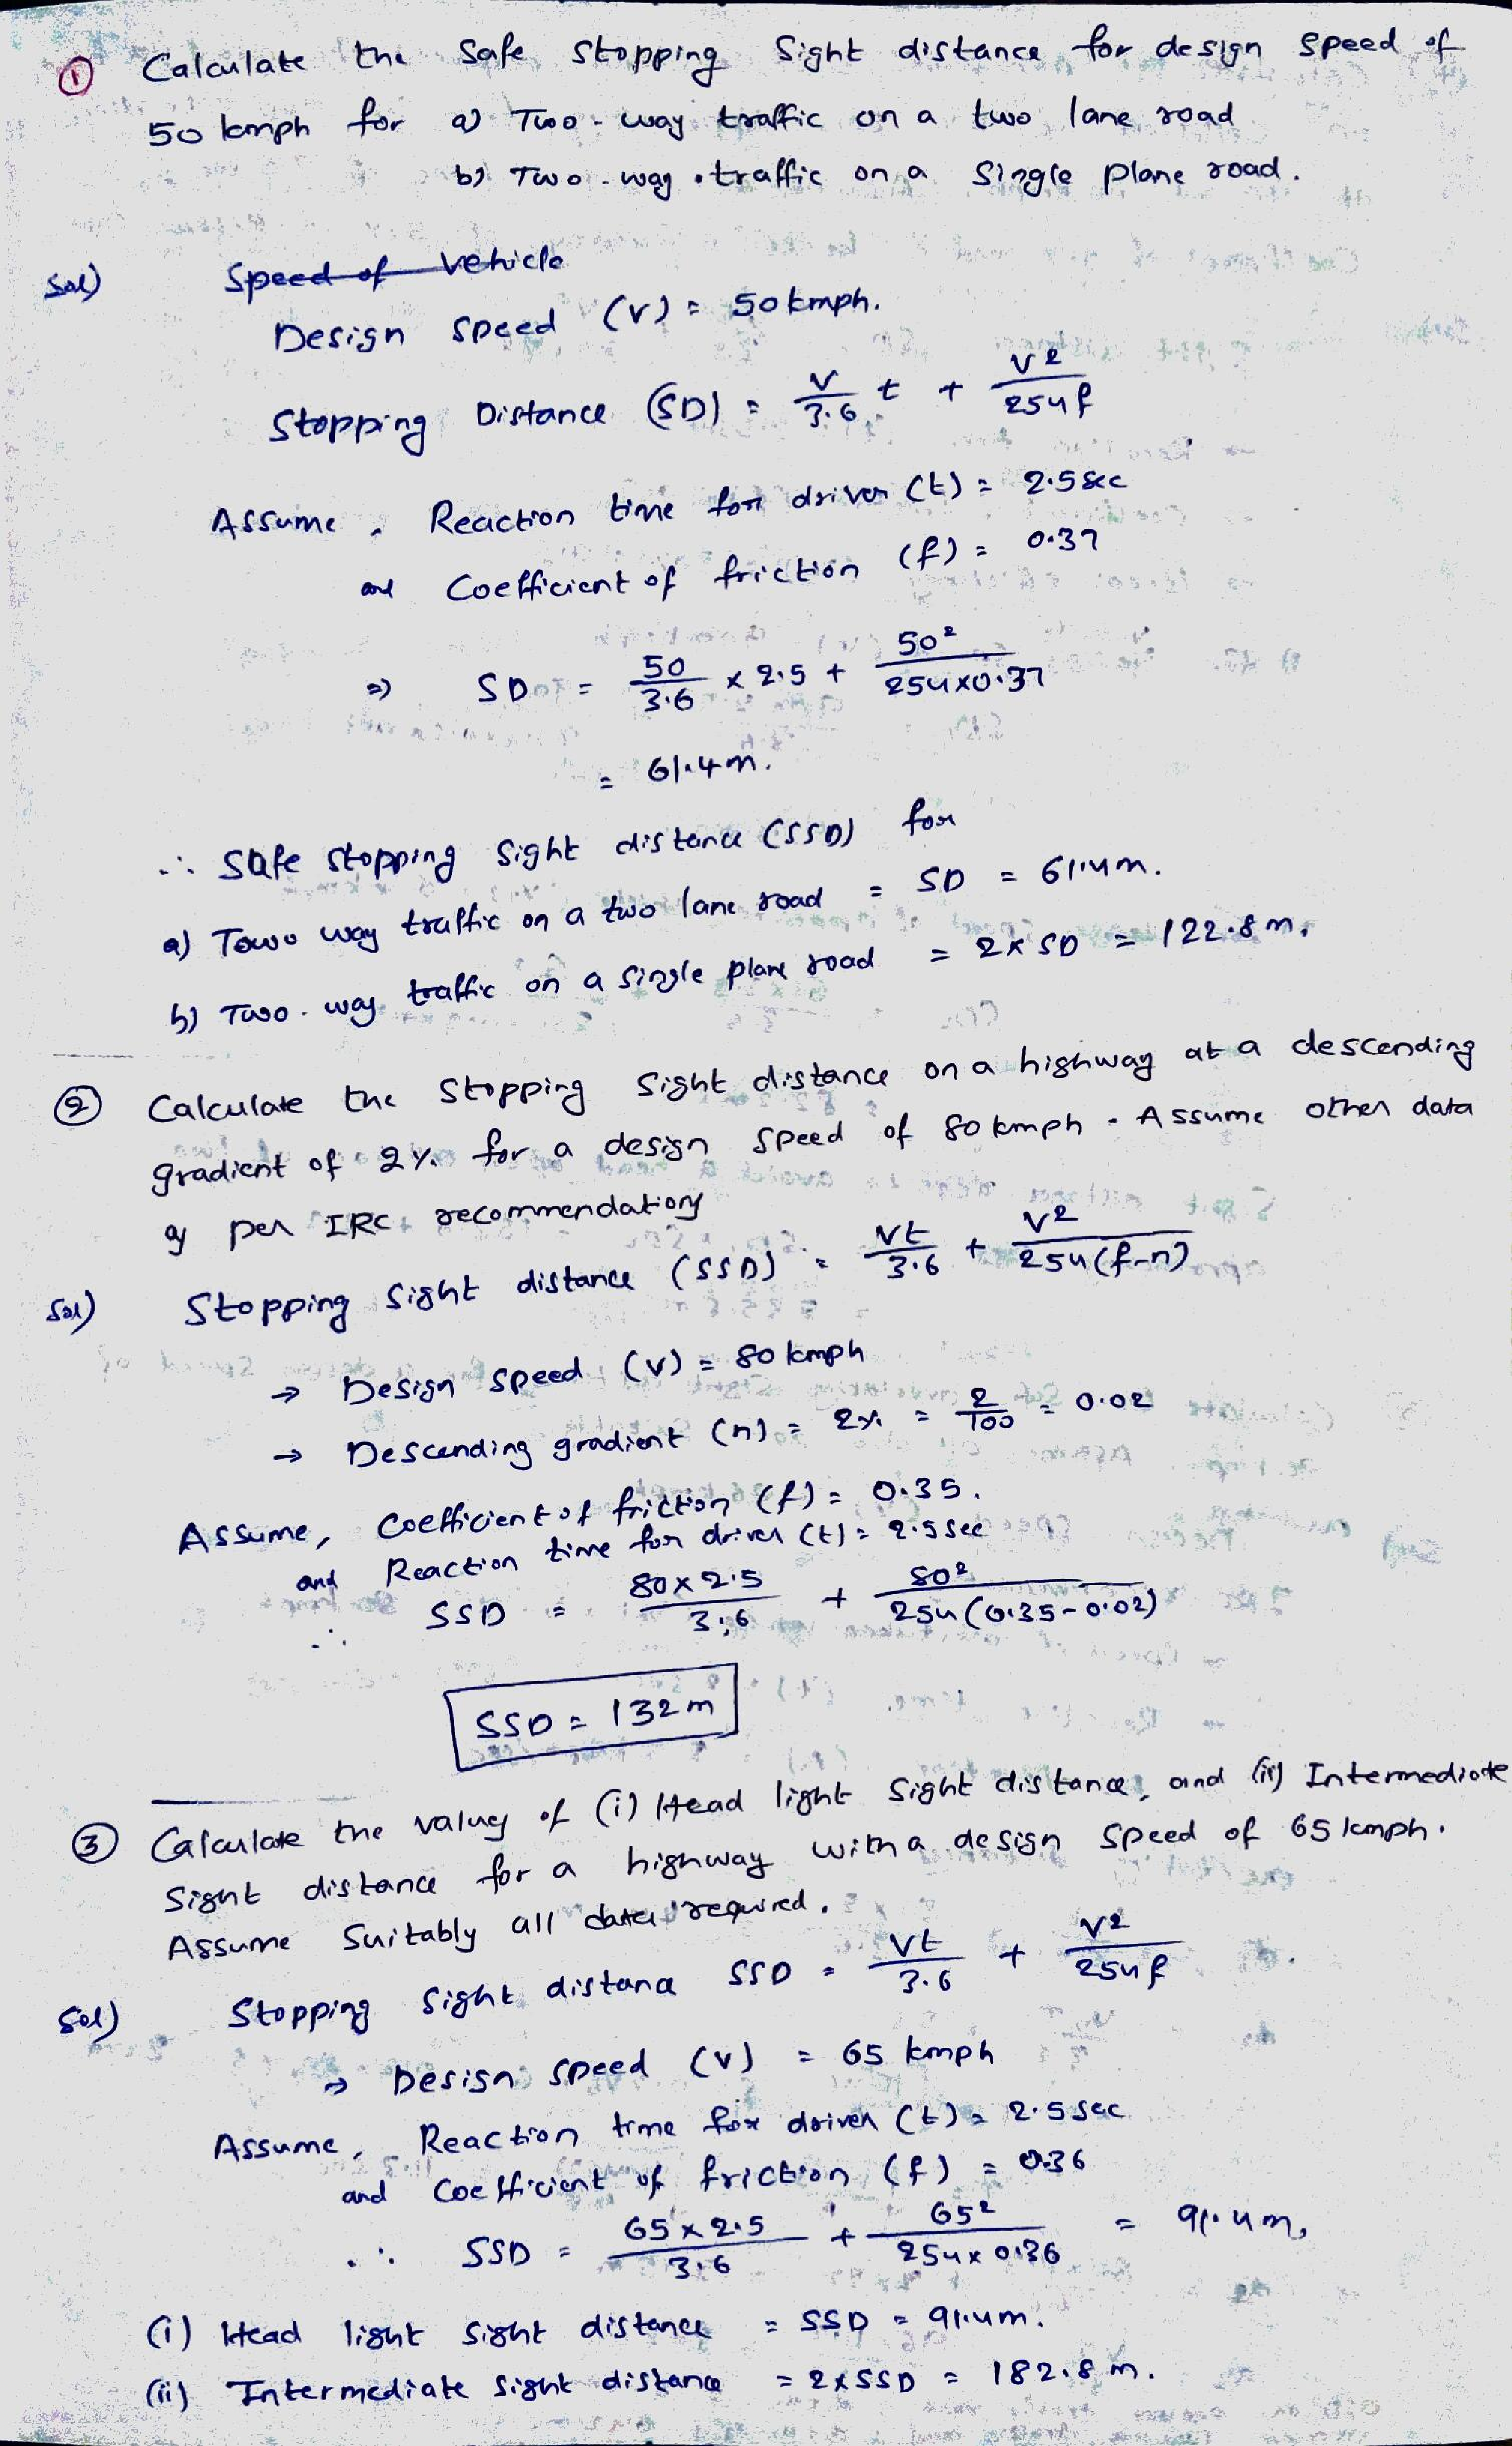 ① Calculate the Safe Stopping Sight distance for design speed of
50 kmph for a) Two-way traffic on a two lane road
b) Two-way traffic on a Single plane road.
Sol) Speed of Vehicle
Design Speed (V) = 50 kmph.
Stopping Distance (SD) = V/3.6 t + V²/254f
Assume, Reaction time for driver (t) = 2.5 sec
and Coefficient of friction (f) = 0.37
⇒ SD = 50/3.6 x 2.5 + 50²/254x0.37
= 61.4m.
∴ Safe Stopping Sight distance (SSD) for
a) Towo way traffic on a two lane road = SD = 61.4m.
b) Two-way traffic on a single plane road = 2x SD = 122.8 m.
② Calculate the Stopping Sight distance on a highway at a descending
gradient of 2% for a design Speed of 80 kmph. Assume other data
as per IRC recommendations
Sol) Stopping Sight distance (SSD) = Vt/3.6 + V²/254(f-n)
→ Design Speed (V) = 80 kmph
→ Descending gradient (n) = 2% = 2/100 = 0.02
Assume, Coefficient of friction (f) = 0.35.
and Reaction time for driver (t) = 2.5 sec
∴ SSD = 80x2.5/3.6 + 80²/254(0.35-0.02)
SSD = 132m
③ Calculate the values of (i) Head light Sight distance, and (ii) Intermediate
Sight distance for a highway with a design Speed of 65 kmph.
Assume Suitably all data required.
Sol) Stopping Sight distance SSD = Vt/3.6 + V²/254f
→ Design Speed (V) = 65 kmph
Assume, Reaction time for driver (t) = 2.5 sec
and Coefficient of friction (f) = 0.36
∴ SSD = 65x2.5/3.6 + 65²/254x0.36 = 91.4m,
(i) Head light Sight distance = SSD = 91.4m.
(ii) Intermediate Sight distance = 2xSSD = 182.8 m.